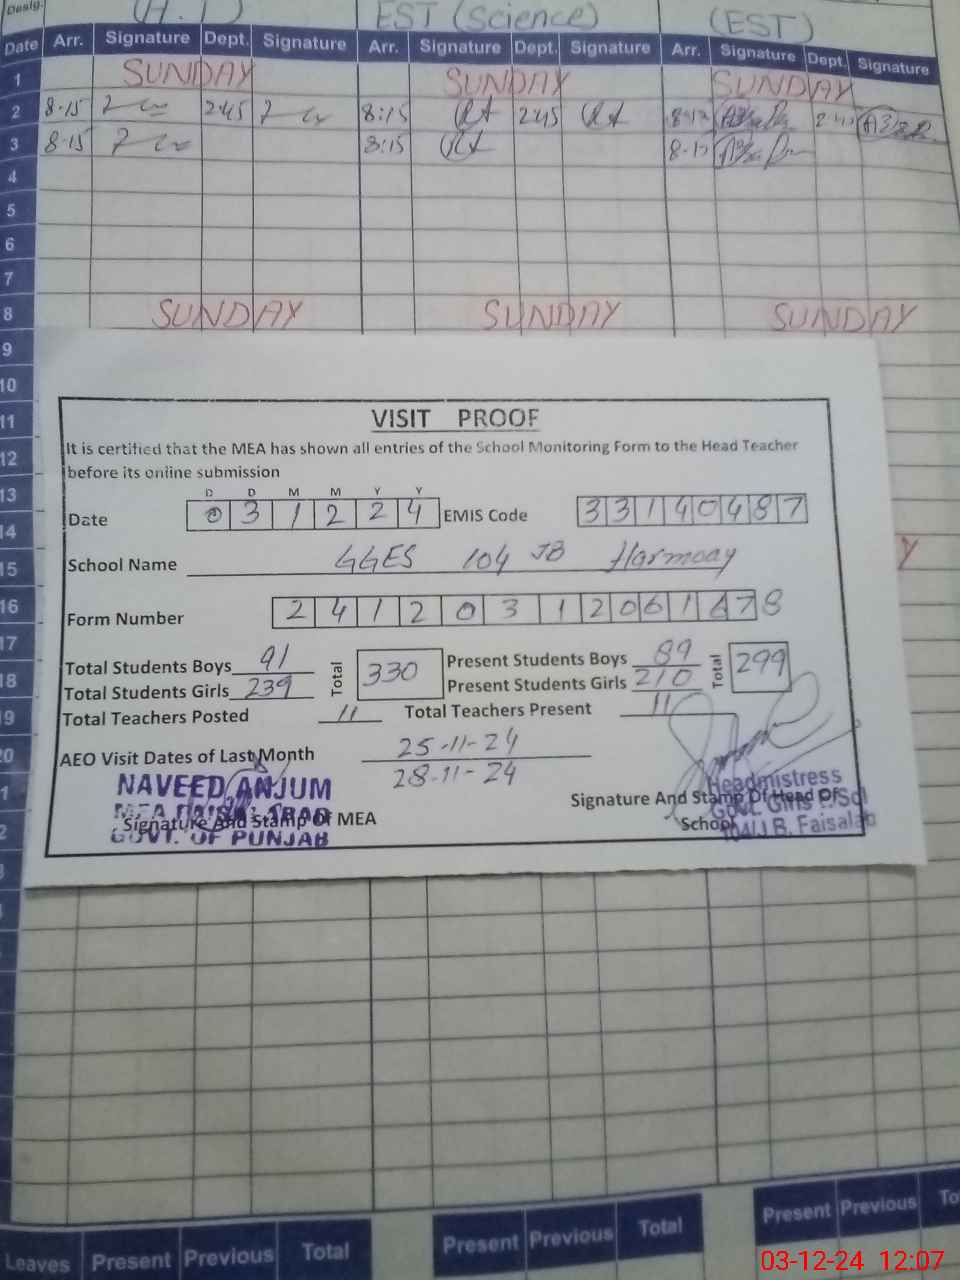 Desig.
(H.T) EST (Science) (EST)
Date Arr. Signature Dept. Signature Arr. Signature Dept. Signature Arr. Signature Dept. Signature
1 SUNDAY SUNDAY SUNDAY
2 8-15 2:45 8:15 2:45
3 8-15 8:15
4
5
6
7
8 SUNDAY SUNDAY SUNDAY
9
10
11
12
13
14
15
16
17
18
19
20
VISIT PROOF
It is certified that the MEA has shown all entries of the School Monitoring Form to the Head Teacher
before its online submission
D D M M Y Y
Date 0 3 1 2 2 4 EMIS Code 3 3 1 4 0 4 8 7
School Name GGES 104 JB Harmoay
Form Number 2 4 1 2 0 3 1 2 0 6 1 6 7 8
Total Students Boys 91 Total 330 Present Students Boys 89 Total 299
Total Students Girls 239 Present Students Girls 210
Total Teachers Posted 11 Total Teachers Present 11
AEO Visit Dates of Last Month 25-11-24
28-11-24
NAVEED ANJUM
MEA FAISALABAD
GOVT. OF PUNJAB
Signature And Stamp Of MEA
Signature And Stamp Of Head Of
School
Headmistress
Govt. Girls E/Scl
104/J.B. Faisalab
Leaves Present Previous Total Present Previous Total Present Previous To
03-12-24 12:07